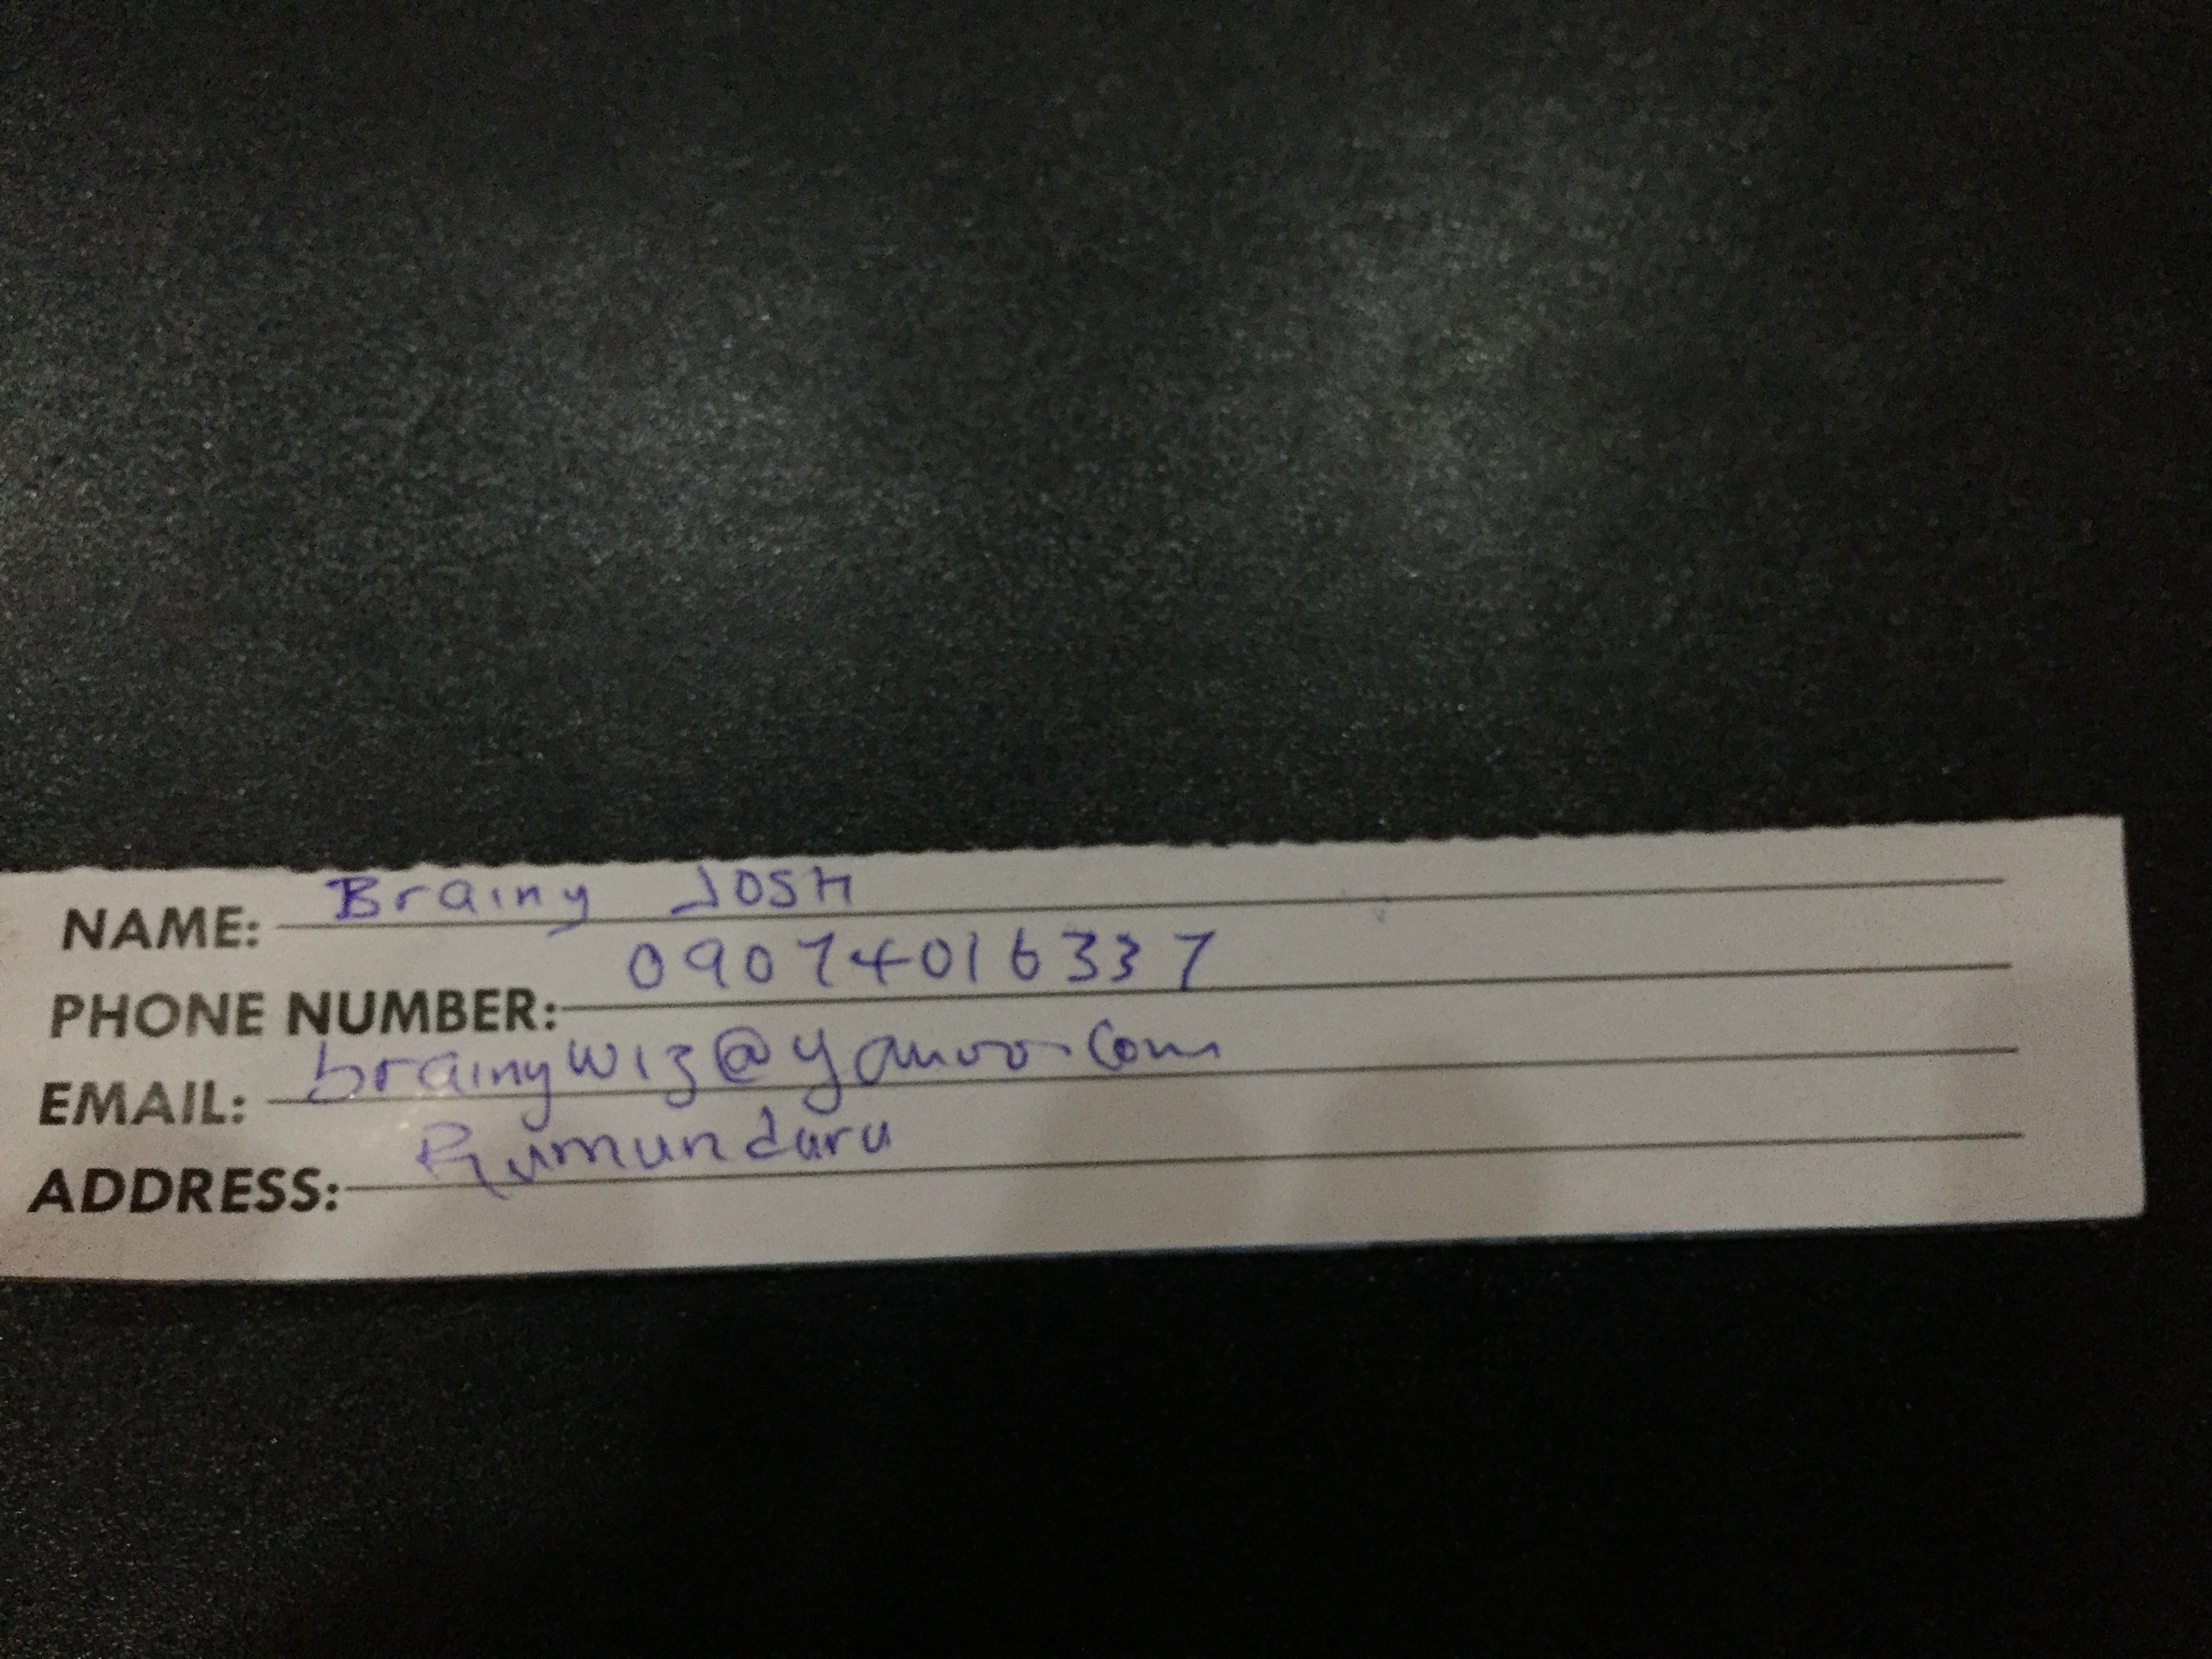 NAME: Brainy Josh
PHONE NUMBER: 09074016337
EMAIL: brainywiz@yahoo.com
ADDRESS: Rumundaru